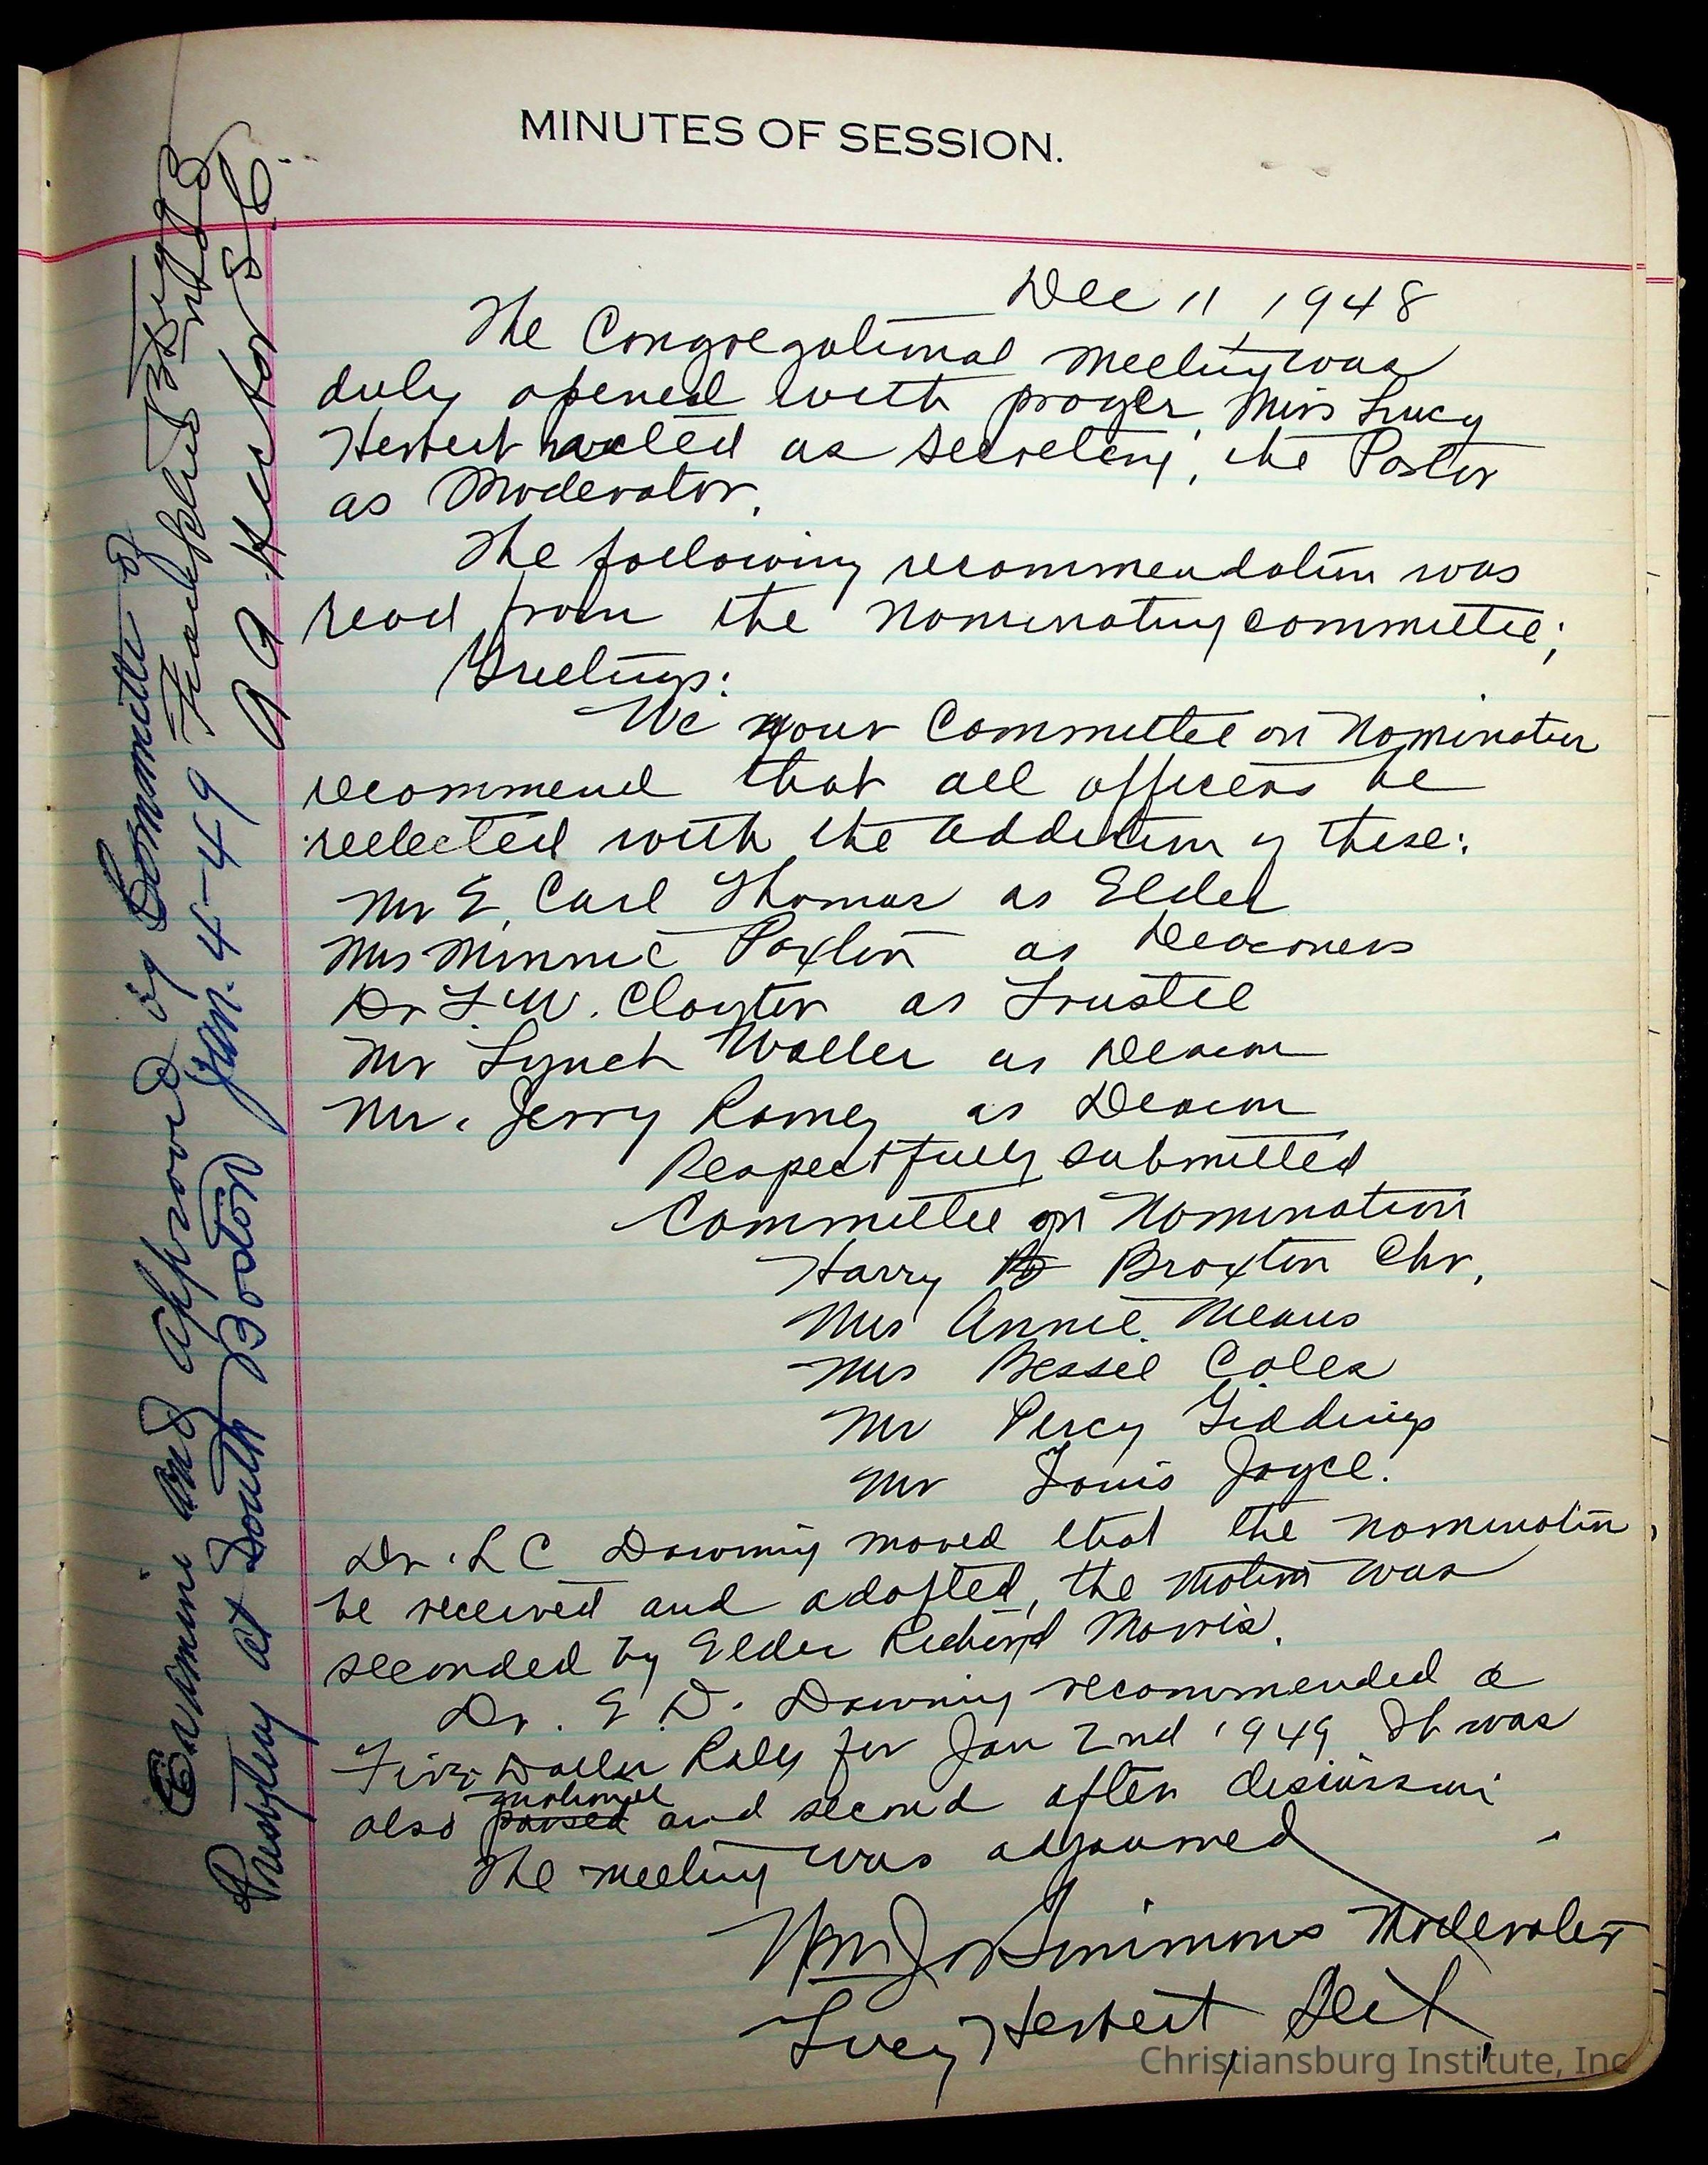 MINUTES OF SESSION.
Dec 11 1948
The Congregational Meeting was
duly opened with prayer, Miss Lucy
Herbert acted as secretary, the Pastor
as Moderator.
The following recommendation was
read from the nominating committee;
Greetings:
We your Committee on Nomination
recommend that all officers be
reelected with the addition of these:
Mr E. Carl Thomas as Elder
Mrs Minnie Paxton as Deaconess
Dr F. W. Claytor as Trustee
Mr Lynch Waller as Deacon
Mr. Jerry Ramey as Deacon
Respectfully submitted
Committee on Nomination
Harry Braxton Chr.
Mrs Annie Meaus
Mrs Bessie Coles
Mr Percy Giddings
Mr Louis Joyce.
Dr. L C Downing moved that the nomination
be received and adopted, the motion was
seconded by Elder Richard Morris.
Dr. E. D. Downing recommended a
Five Dollar Rally for Jan 2nd 1949 It was
also passed and second after discussion
The meeting was adjourned
Wm J Simmons Moderator
Lucy Herbert, Sect,
Examine and approved by Committee of
Presbytery at South Boston Jan. 4-49
A A Hector S. C.
Christiansburg Institute, Inc